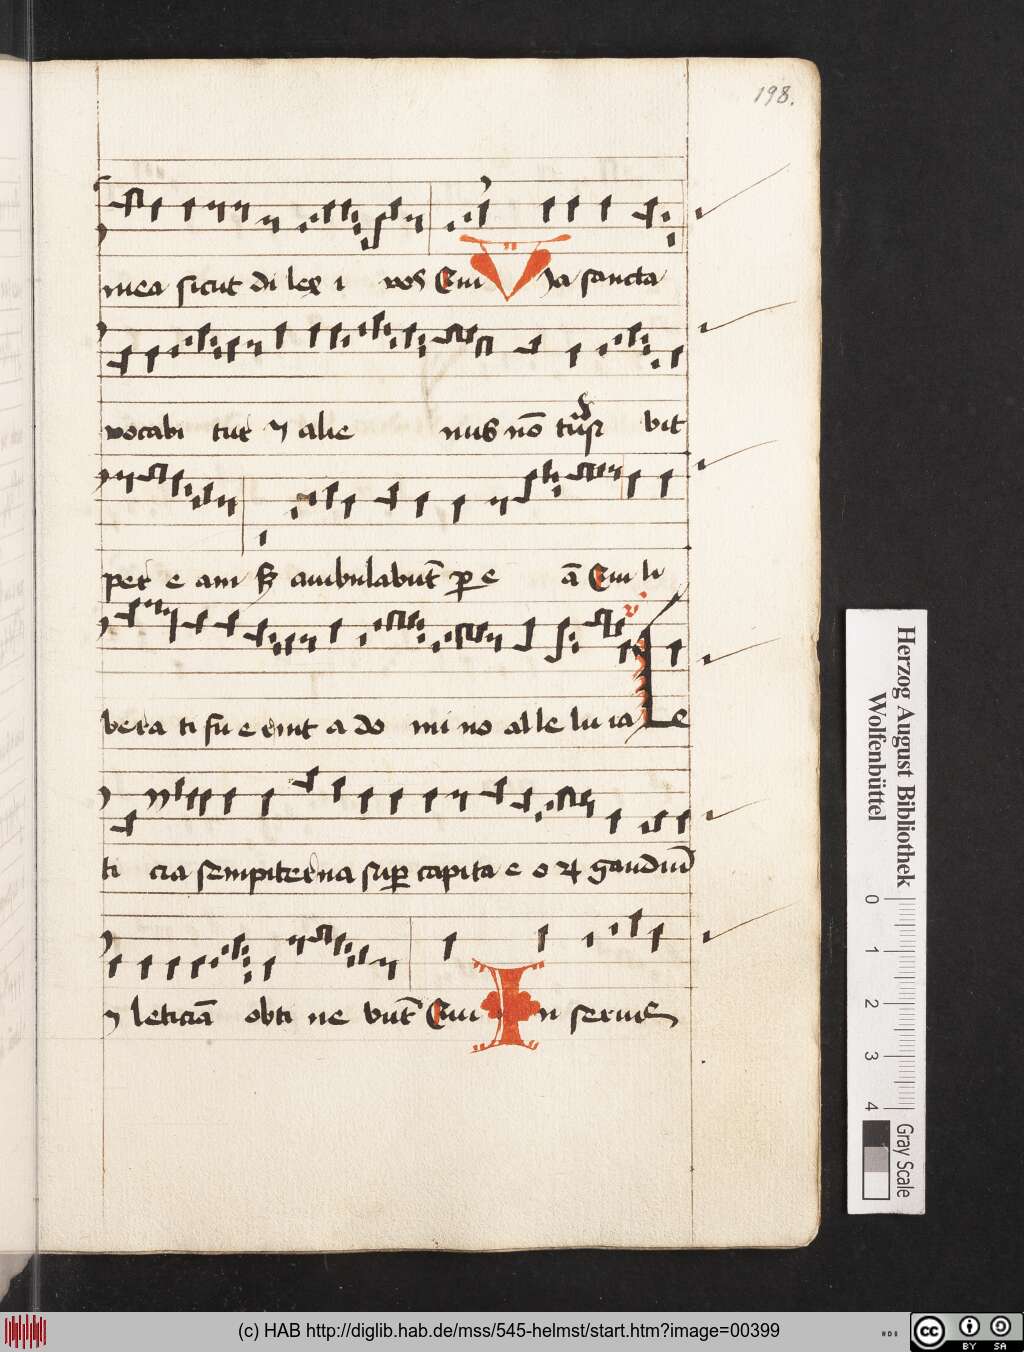 198.
mea sicut di lex i vos Eui Via sancta
vocabi tur ⁊ alie nus nō trāsi bit
per e am sꝫ ambulabūt ꝑ e ā Eui li
v
bera ti fu e rint a do mi no al le lu ia Le
ti cia sempiterna suꝑ capita e o ꝝ gaudiū
⁊ leticiā obti ne būt Eui In servis
Herzog August Bibliothek
Wolfenbüttel
0 1 2 3 4
Gray Scale
(c) HAB http://diglib.hab.de/mss/545-helmst/start.htm?image=00399
cc BY SA